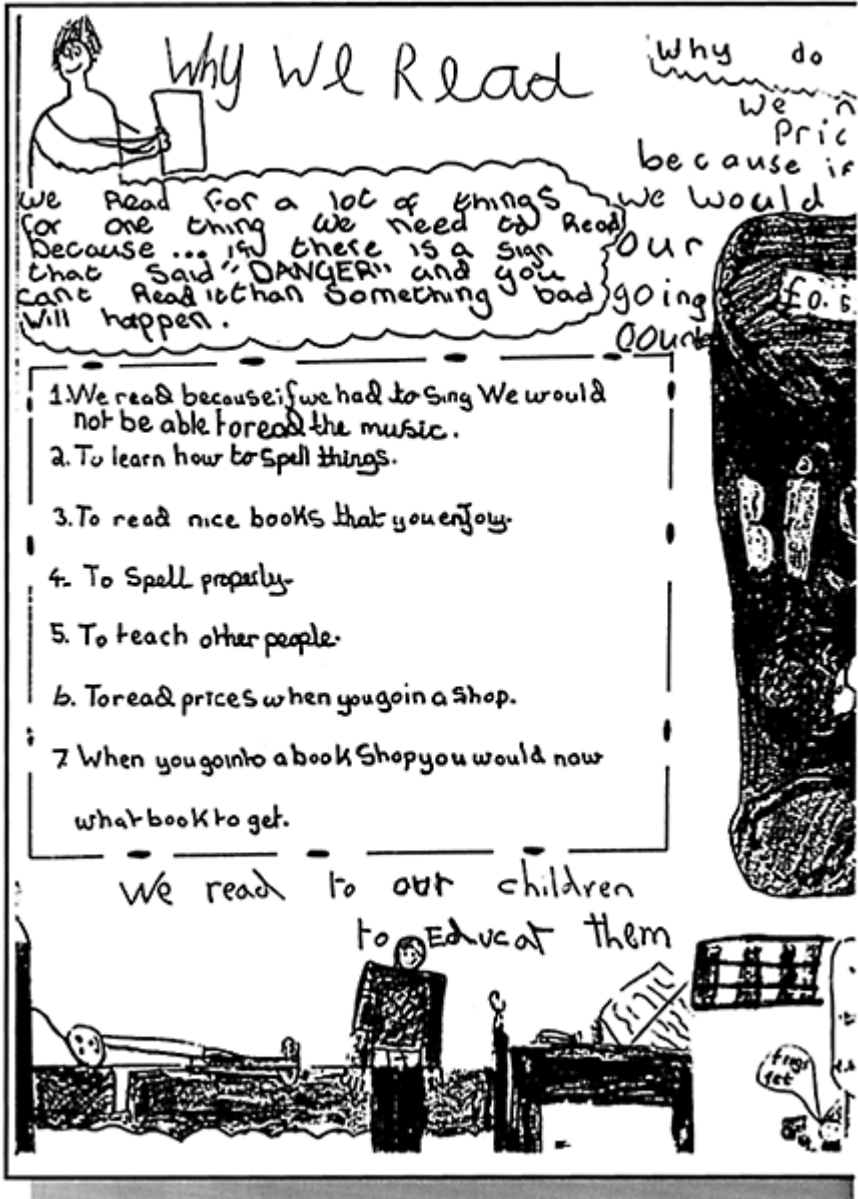 Why We Read
We Read for a lot of things
for one thing we need to Read
because ... if there is a sign
that said "DANGER" and you
cant Read it than something bad
will happen.
Why do
we
because if
we would
our
going
£0.
1. We read because if we had to sing We would
not be able to read the music.
2. To learn how to spell things.
3. To read nice books that you enjoy.
4. To Spell properly.
5. To teach other people.
6. To read prices when you go in a shop.
7 When you go into a book Shop you would now
what book to get.
We read to our children
to Educat them